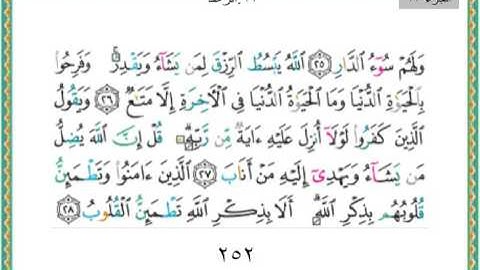 وَلَهُمْ سُوٓءُ الدَّارِ ٢٥ اللَّهُ يَبْسُطُ الرِّزْقَ لِمَن يَشَآءُ وَيَقْدِرُ ۚ وَفَرِحُوا۟
بِالْحَيَوٰةِ الدُّنْيَا وَمَا الْحَيَوٰةُ الدُّنْيَا فِى الْءَاخِرَةِ إِلَّا مَتَٰعٌ ٢٦ وَيَقُولُ
الَّذِينَ كَفَرُوا۟ لَوْلَآ أُنزِلَ عَلَيْهِ ءَايَةٌ مِّن رَّبِّهِۦ ۗ قُلْ إِنَّ اللَّهَ يُضِلُّ
مَن يَشَآءُ وَيَهْدِىٓ إِلَيْهِ مَنْ أَنَابَ ٢٧ الَّذِينَ ءَامَنُوا۟ وَتَطْمَئِنُّ
قُلُوبُهُم بِذِكْرِ اللَّهِ ۗ أَلَا بِذِكْرِ اللَّهِ تَطْمَئِنُّ الْقُلُوبُ ٢٨
٢٥٢